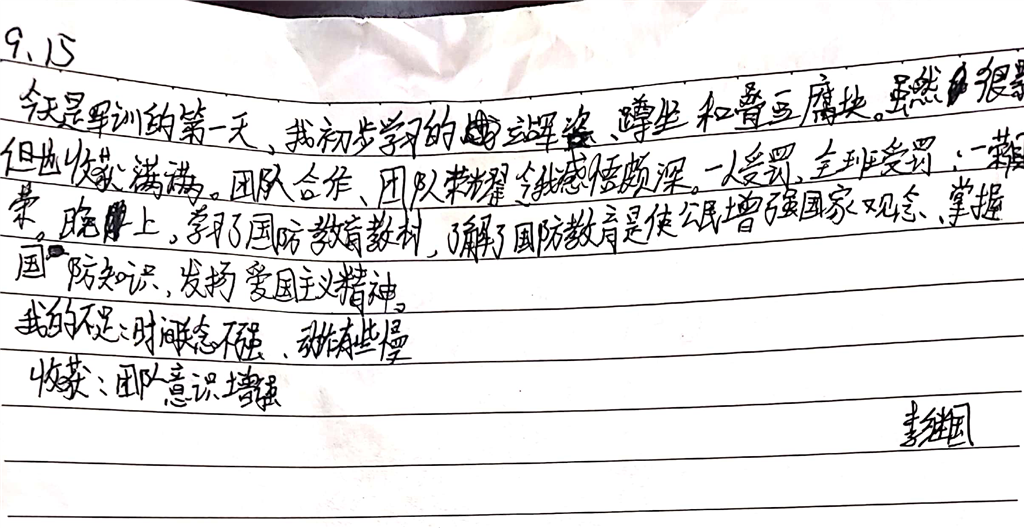 9.15
今天是军训的第一天、我初步学习的站军姿、蹲坐和叠豆腐块。虽然很累
但也收获满满。团队合作、团队荣耀令我感悟颇深。一人受罚、全班受罚;一荣
荣。晚上。学习了国防教育教材,了解了国防教育是使公民增强国家观念、掌握
国防知识,发扬爱国主义精神。
我的不足:时间观念不强、动作有些慢
收获:团队意识增强
李继国